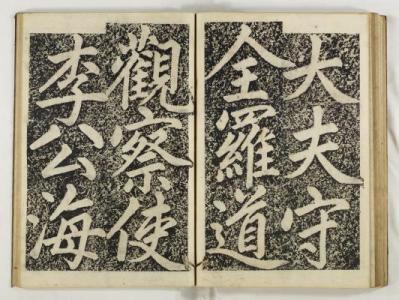 大夫守
全羅道
觀察使
李公海